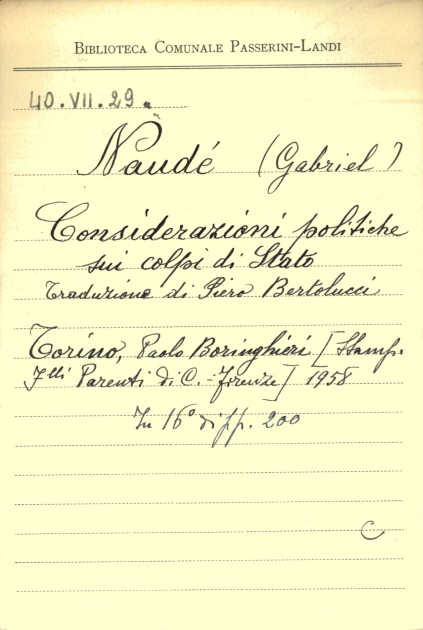 BIBLIOTECA COMUNALE PASSERINI-LANDI
40.VII.29.
Naudé (Gabriel)
Considerazioni politiche
sui colpi di Stato
Traduzione di Piero Bertolucci
Torino, Paolo Boringhieri [Stamp.
F.lli Parenti di C. - Firenze] 1958
In 16° di pp. 200
C